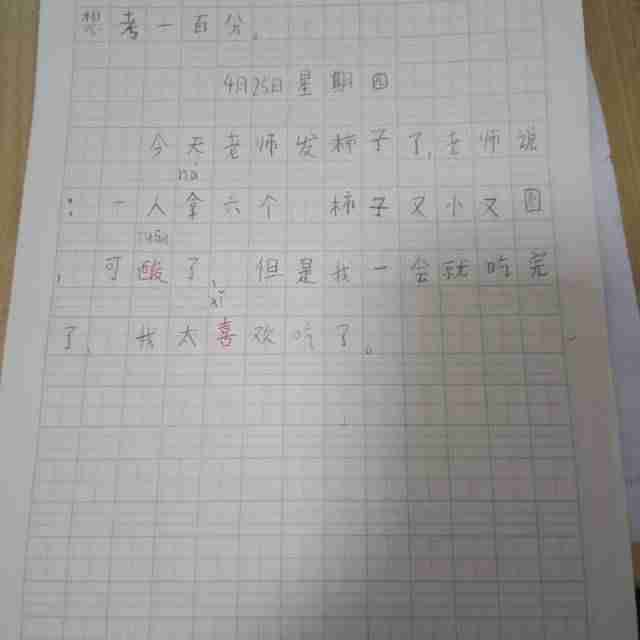 想考一百分。
4月25日星期四
今天老师发柿子了,老师说
na
:一人拿六个 柿子又小又圆
suan
,可酸了 但是我一会就吃完
xi
了、我太喜欢吃了。